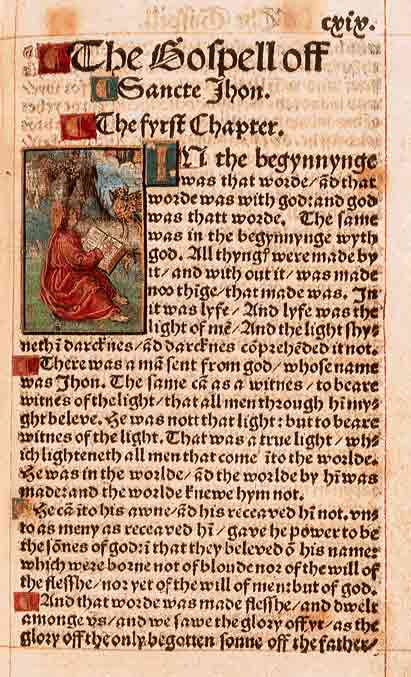 cxix.
The Gospell off
Sancte Jhon.
The fyrst Chapter.
IN the begynnynge
was that worde/ ād that
worde was with god: and god
was thatt worde. The same
was in the begynnynge wyth
god. All thyngſ were made by
it/ and with out it/ was made
noo thīge/ that made was. In
it was lyfe/ And lyfe was the
light of mē/ And the light shy⸗
neth ī darcknes/ ād darcknes cōprehēded it not.
There was a mā sent from god/ whose name
was Jhon. The same cā as a witnes/ to beare
witnes of the light/ that all men through hī my⸗
ght beleve. He was nott that light: but to beare
witnes of the light. That was a true light/ wh⸗
ich lighteneth all men that come īto the worlde.
He was in the worlde/ ād the worlde by hī was
made: and the worlde knewe hym not.
He cā īto his awne/ ād his receaved hī not. vn⸗
to as meny as receaved hī/ gave he power to be
the sōnes of god: ī that they beleved ō his name:
which were borne not of bloude nor of the will of
the flesshe/ nor yet of the will of men: but of god.
And that worde was made flesshe/ and dwelt
amonge vs/ and we sawe the glory off yt/ as the
glory off the only begotten sonne off the father/